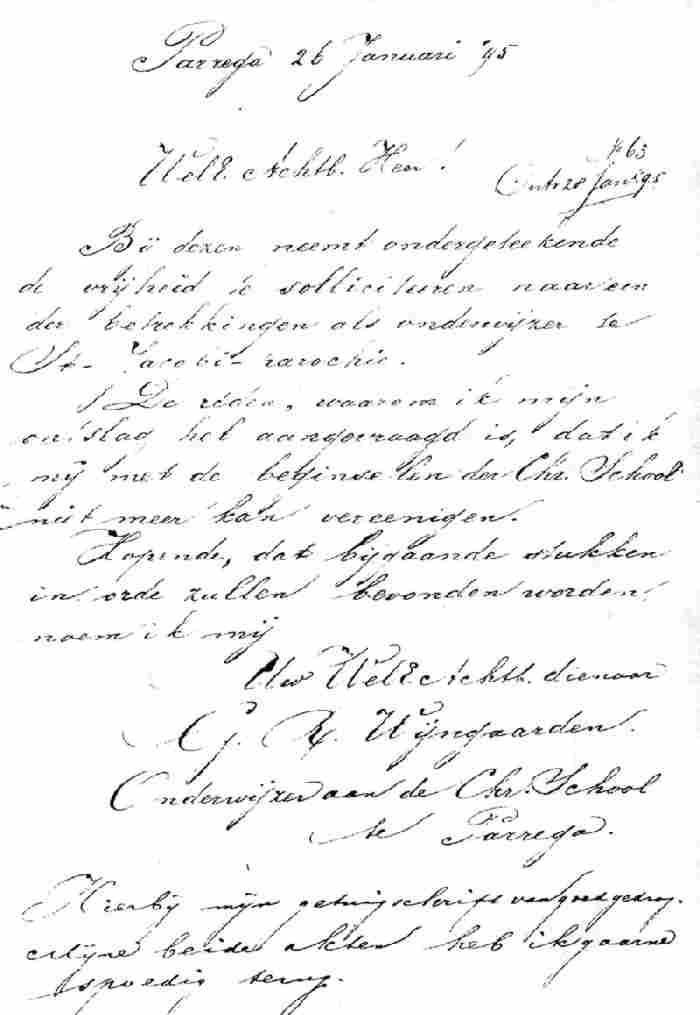 Parrega 26 Januari '95
WelE. Achtb. Heer!
No 63
Ontv. 28 Jan. 95
Bij dezen neemt ondergeteekende
de vrijheid te solliciteeren naar een
der betrekkingen als onderwijzer te
St- Jacobi-parochie.
De reden, waarom ik mijn
ontslag heb aangevraagd is, dat ik
mij met de beginselen der Chr. School
niet meer kan vereenigen.
Hopende, dat bijgaande stukken
in orde zullen bevonden worden,
noem ik mij
Uw WelE. Achtb. dienaar
G. R. Wijngaarden.
Onderwijzer aan de Chr. School
te Parrega.
Hierbij mijn getuigschrift van goed gedrag.
Mijne beide akten heb ik gaarne
spoedig terug.